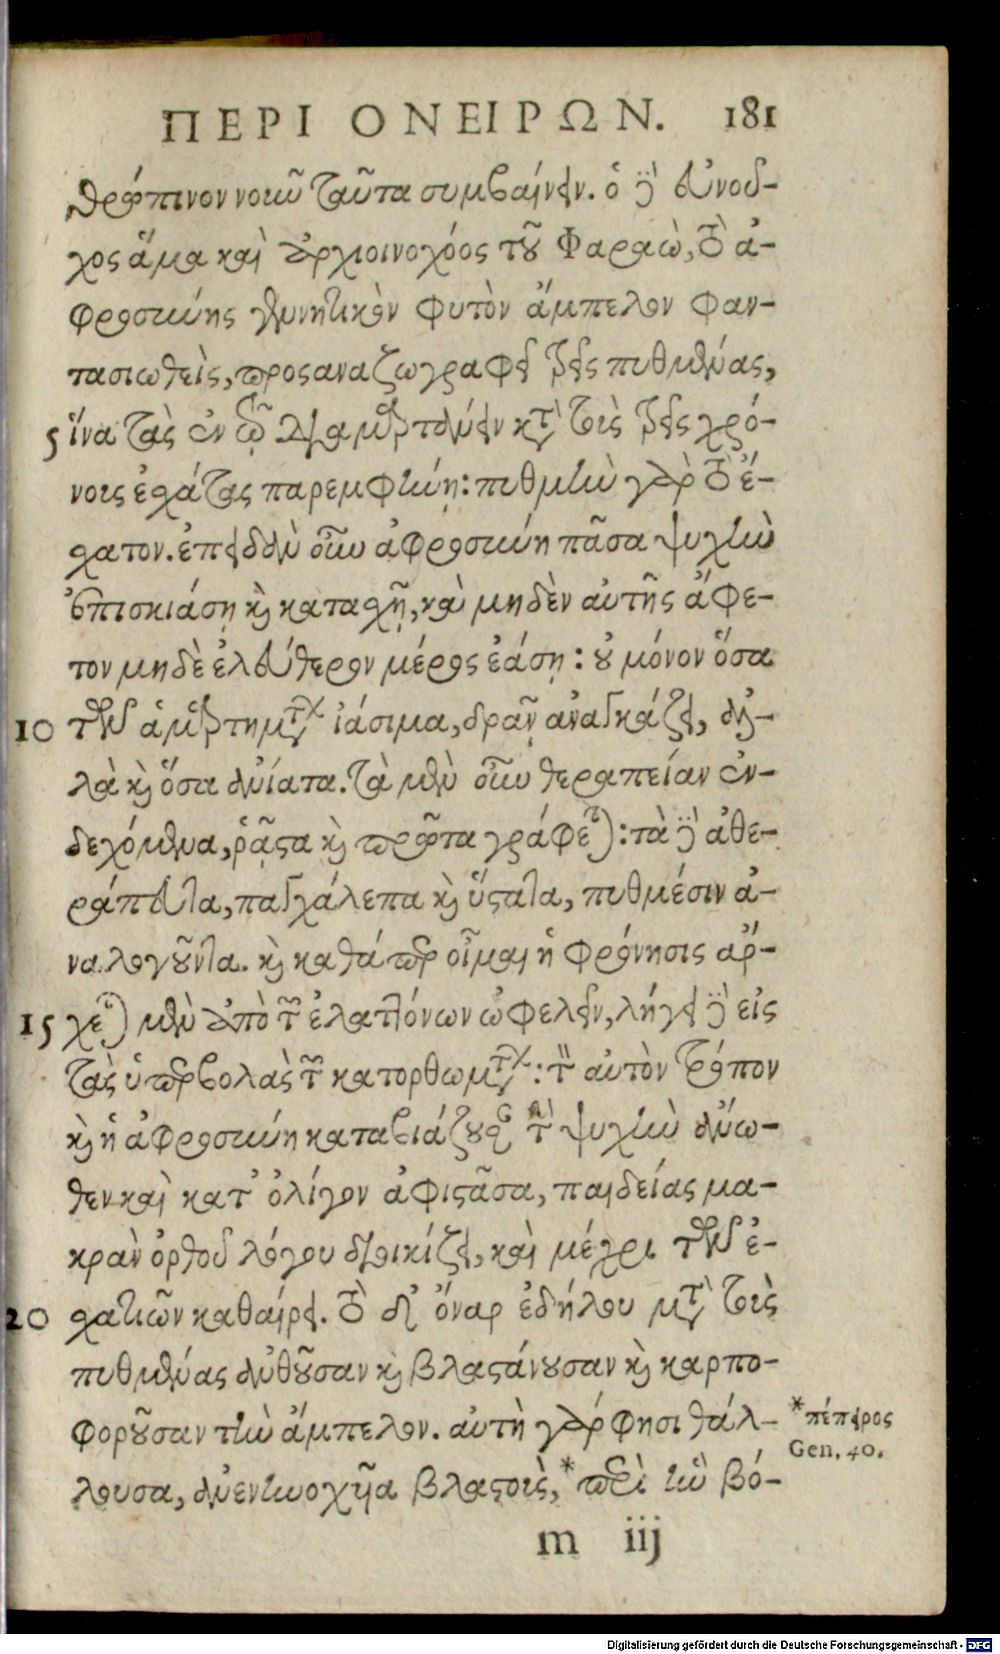 ΠΕΡΙ ΟΝΕΙΡΩΝ. 181
θρώπινον νοιῶ ταῦτα συμβαίνειν. ὁ δὲ εὐνοῦ-
χος ἅμα καὶ ἀρχιοινοχόος τοῦ Φαραὼ, τὸ ἀ-
φροσύνης γεννητικὸν φυτὸν ἄμπελον φαν-
τασιωθεὶς, προσαναζωγραφεῖ τρεῖς πυθμένας,
5 ἵνα τὰς ἐν τῷ διαμαρτάνειν κατὰ τοὺς τρεῖς χρό-
νους ἐσχάτας παρεμφήνῃ: πυθμὴν γὰρ τὸ ἔ-
σχατον. ἐπειδὰν οὖν ἀφροσύνη πᾶσαν ψυχὴν
ἐπισκιάσῃ καὶ κατασχῇ, καὶ μηδὲν αὐτῆς ἄφε-
τον μηδὲ ἐλεύθερον μέρος ἐάσῃ: οὐ μόνον ὅσα
10 τῶν ἁμαρτημάτων ἰάσιμα, δρᾷν ἀναγκάζει, ἀλ-
λὰ καὶ ὅσα ἀνίατα. τὰ μὲν οὖν θεραπείαν ἐν-
δεχόμενα, ῥᾷστα καὶ πρῶτα γράφεται: τὰ δὲ ἀθε-
ράπευτα, παγχάλεπα καὶ ὕστατα, πυθμέσιν ἀ-
ναλογοῦντα. καὶ καθάπερ οἶμαι ἡ φρόνησις ἄρ-
15 χεται μὲν ἀπὸ τῶν ἐλαττόνων ὠφελεῖν, λήγει δὲ εἰς
τὰς ὑπερβολὰς τῶν κατορθωμάτων: τὸν αὐτὸν τρόπον
καὶ ἡ ἀφροσύνη καταβιάζουσα τὴν ψυχὴν ἄνω-
θεν καὶ κατ' ὀλίγον ἀφιστᾶσα, παιδείας μα-
κρὰν ὀρθοῦ λόγου διοικίζει, καὶ μέχρι τῶν ἐ-
20 σχατιῶν καθαίρει. τὸ δ' ὄναρ ἐδήλου μετὰ τοὺς
πυθμένας ἀνθοῦσαν καὶ βλαστάνουσαν καὶ καρπο-
φοροῦσαν τὴν ἄμπελον. αὐτὴ γάρ φησι θάλ-
λουσα, ἀνενηνοχῆα βλαστοὺς,* περὶ ἣν βό-
*πέπειρος
Gen. 40.
m iij
Digitalisierung gefördert durch die Deutsche Forschungsgemeinschaft - DFG